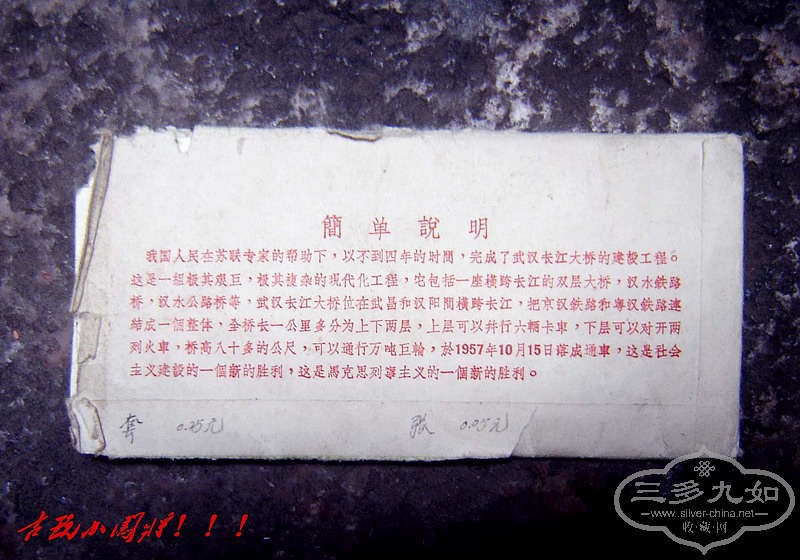 簡单說明
我国人民在苏联专家的帮助下，以不到四年的时間，完成了武汉长江大桥的建設工程。
这是一組极其艰巨，极其複杂的现代化工程，宅包括一座橫跨长江的双层大桥，汉水铁路
桥，汉水公路桥等，武汉长江大桥位在武昌和汉阳間橫跨长江，把京汉铁路和粤汉铁路連
結成一個整体，全桥长一公里多分为上下两层，上层可以幷行六輛卡車，下层可以对开两
列火車，桥高八十多的公尺，可以通行万吨巨輪，於1957年10月15日落成通車，这是社会
主义建設的一個新的胜利，这是馬克思列寧主义的一個新的胜利。
套 0.25元 张 0.05元
三多九如
www.silver-china.net
收藏网
古玩小闯将！！！